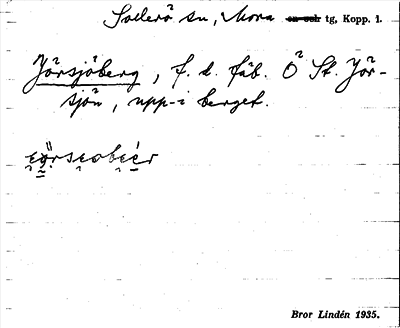 Sollerö sn, Mora tg, Kopp. 1.
Jörsjöberg, f. d. fäb. O St. Jör-
sjön, upp-i berget.
Bror Lindén 1935.